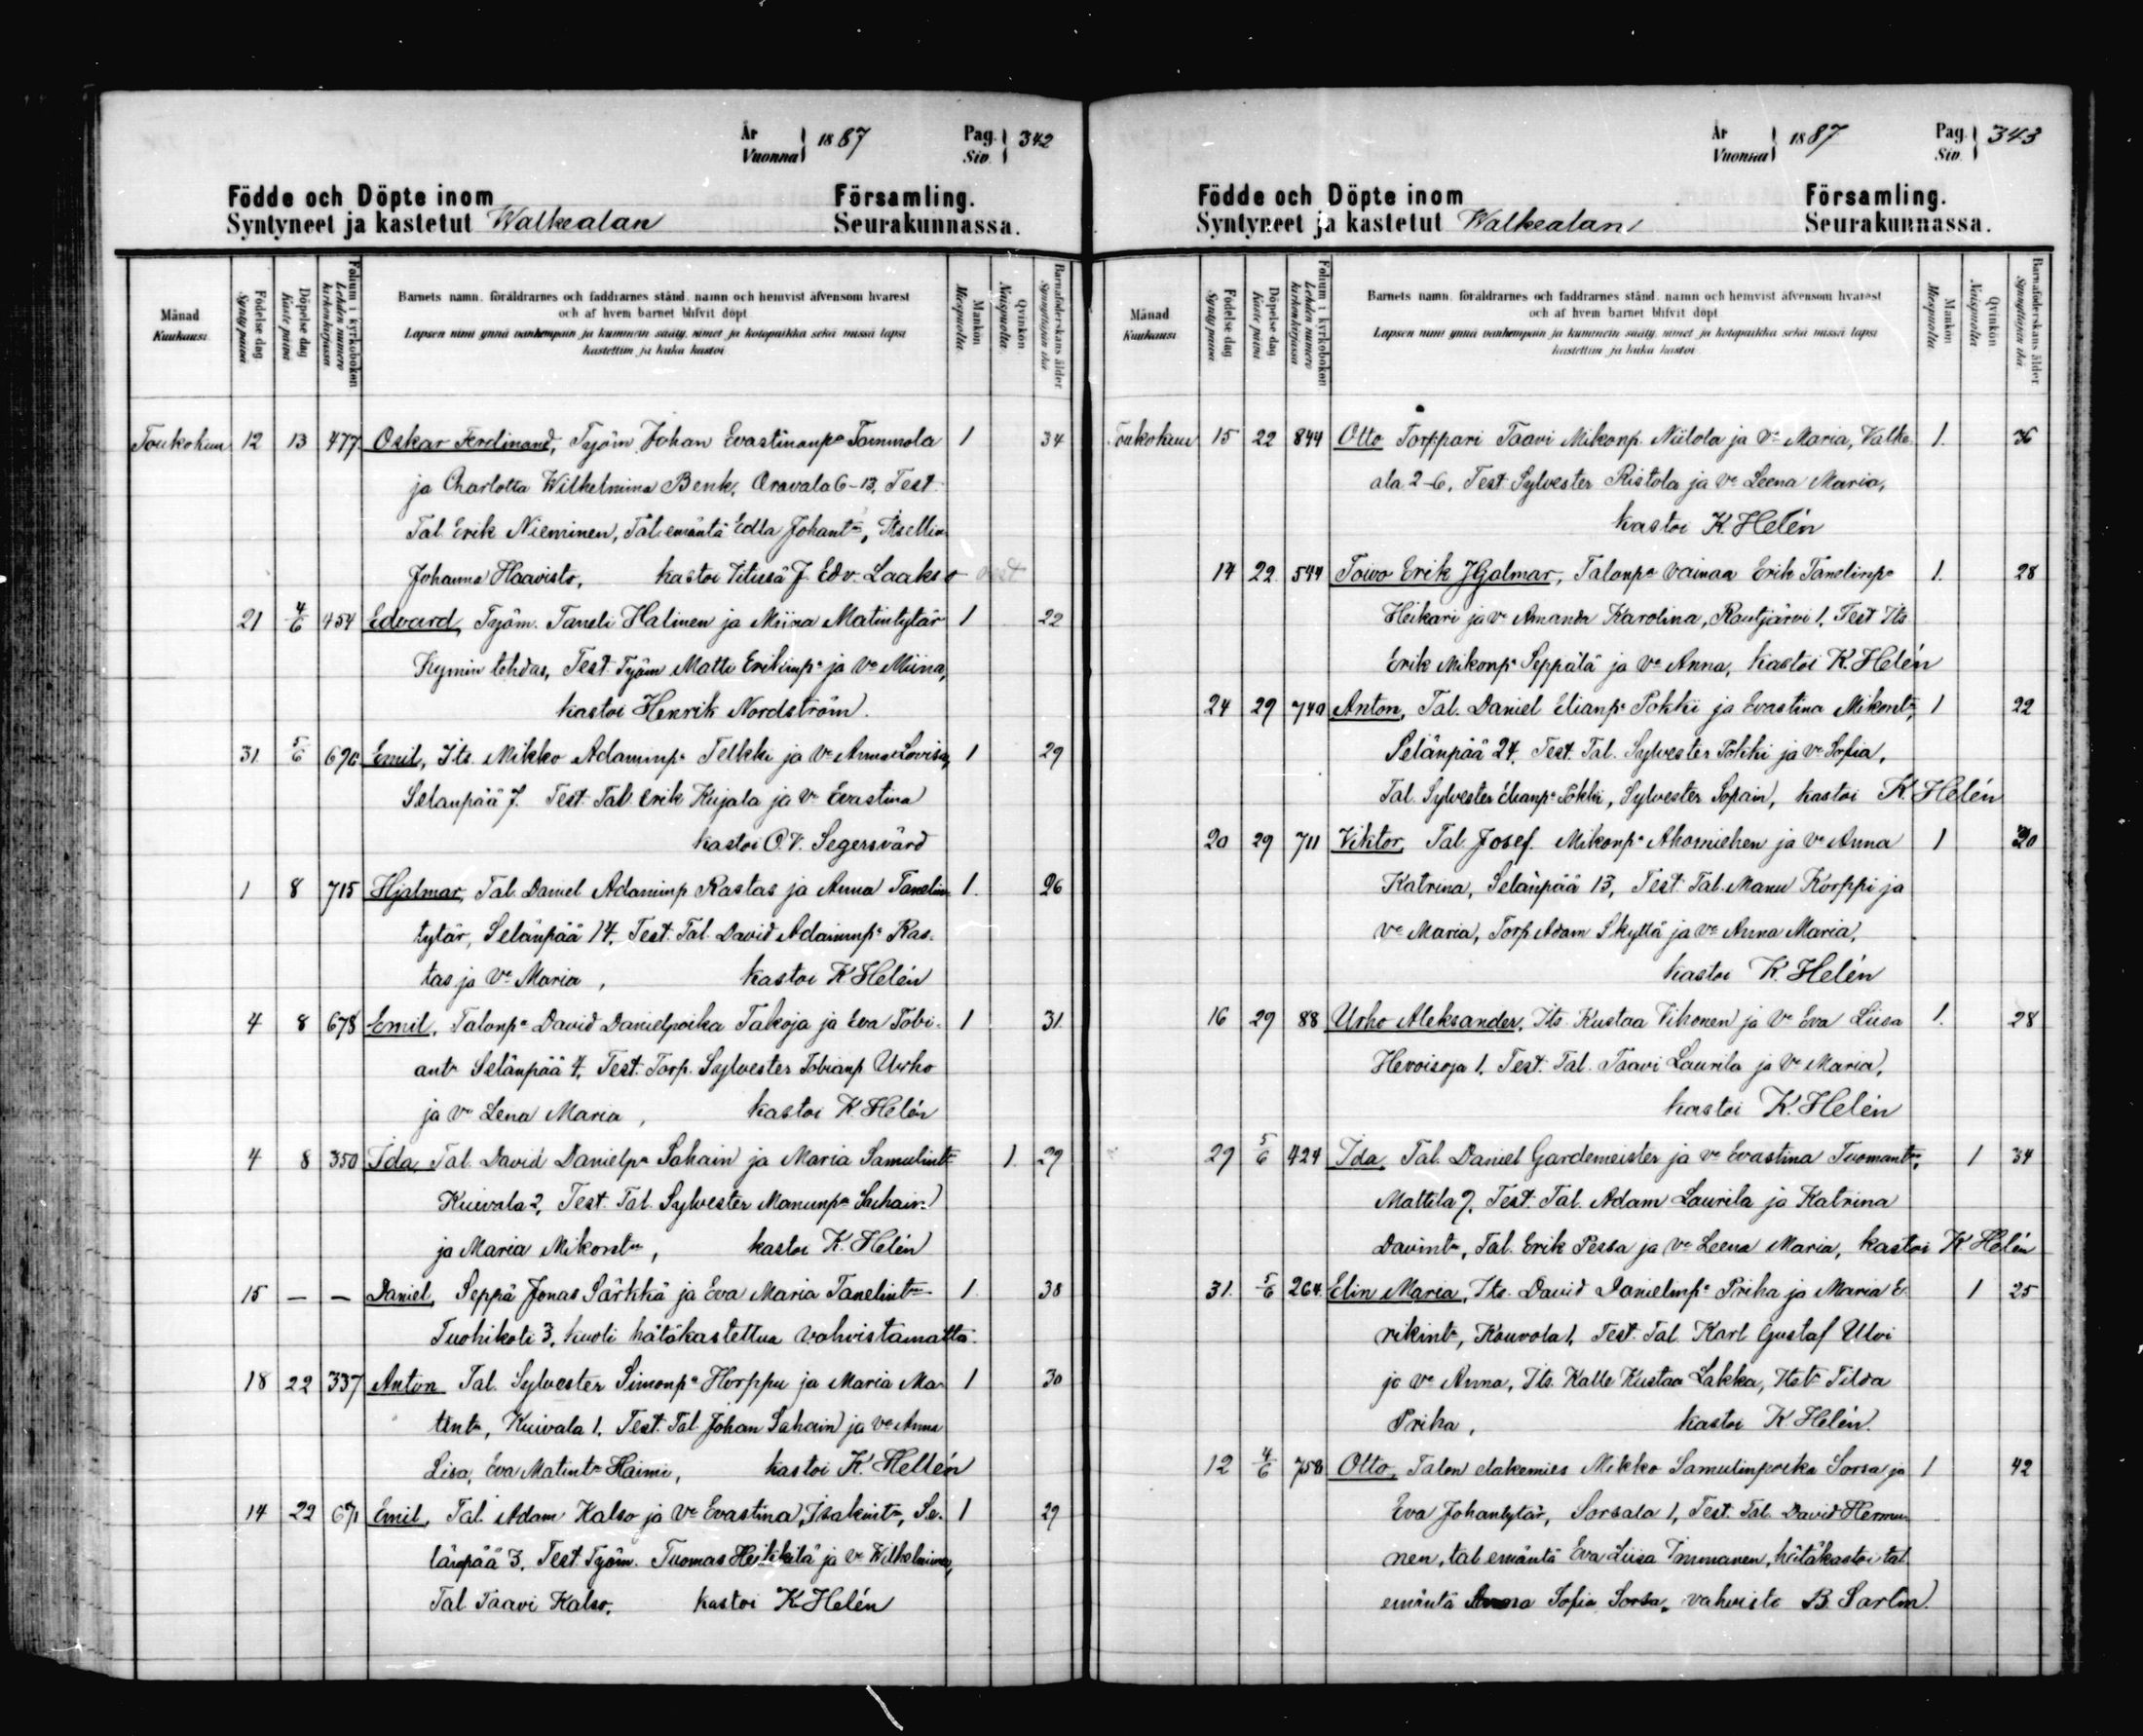 År Vuonna 1887 Pag. Siv. 342
Födde och Döpte inom Församling.
Syntyneet ja kastetut Walkealan Seurakunnassa.
Månad Kuukausi
Födelse dag Synty päivä
Döpelse dag Kaste päivä
Folium i kyrkoboken Lehden numero kirkonkirjassa
Barnets namn, föräldrarnes och faddrarnes stånd, namn och hemvist äfvensom hvarest
och af hvem barnet blifvit döpt
Lapsen nimi ynnä vanhempain ja kummein sääty, nimet ja kotopaikka sekä missä lapsi
kastettiin ja kuka kastoi
Mankön Miespuolia
Qvinkön Naispuolia
Barnaföderskans ålder Synnyttäjän ikä
Toukokuu 12 13 477 Oskar Ferdinand, Työm. Johan Evastinanpa Tommola 1 34
ja Charlotta Wilhelmina Benk, Oravala 6-13, Test.
Tal. Erik Nieminen, Tal. emäntä Edla Johantr, Itsellin
Johanna Haavisto, kastoi Iitissä J. Edv. Laakso
21 4/6 454 Edvard, Työm. Taneli Halinen ja Miina Matintytär 1 22
Kymin tehdas, Test. Työm Matti Erikinpa ja Vo Miina,
kastoi Henrik Nordström.
31 5/6 690 Emil, Its. Mikko Adaminpa Telkki ja Vo Anna Lovisa, 1 29
Selanpää 7. Test. Tal. Erik Kujala ja Vo Evastina
kastoi O.V. Segersvärd
1 8 715 Hjalmar, Tal. Daniel Adaminp Rastas ja Anna Tanelin 1. 26
tytär, Selänpää 14, Test. Tal. David Adaminpa Ras-
tas ja Vo Maria, kastoi K Helén
4 8 678 Emil, Talonpa David Danielpoika Takoja ja Eva Tobi- 1 31.
antr Selänpää 4, Test. Torp. Sylvester Tobianp Urho
ja Vo Lena Maria, kastoi K Helén
4 8 350 Ida, Tal. David Danielpa Sahain ja Maria Samulintr 1. 29
Kuivala 2, Test. Tal. Sylvester Manunpa Sahain
ja Maria Mikontr, kastoi K. Helén
15 — — Daniel, Seppä Jonas Särkkä ja Eva Maria Tanelintr 1. 38
Tuohikoti 3, kuoli hätäkastettua vahvistamatta.
18 22 337 Anton Tal. Sylvester Simonpa Horppu ja Maria Ma- 1 30
tintr, Kuivala 1, Test. Tal. Johan Sahain ja Vo Anna
Lisa, Eva Matintr Haimi, kastoi K. Hellén
14 22 671 Emil, Tal. Adam Kalso ja Vo Evastina, Isakintr, Se- 1 29
länpää 3, Test. Työm. Tuomas Heikkilä ja Vo Wilhelmina,
Tal. Taavi Kalso, kastoi K Helén
År Vuonna 1887 Pag. Siv. 343
Födde och Döpte inom Församling.
Syntyneet ja kastetut Walkealan Seurakunnassa.
Månad Kuukausi
Födelse dag Synty päivä
Döpelse dag Kaste päivä
Folium i kyrkoboken Lehden numero kirkonkirjassa
Barnets namn, föräldrarnes och faddrarnes stånd, namn och hemvist äfvensom hvarest
och af hvem barnet blifvit döpt
Lapsen nimi ynnä vanhempain ja kummein sääty, nimet ja kotopaikka sekä missä lapsi
kastettiin ja kuka kastoi
Mankön Miespuolia
Qvinkön Naispuolia
Barnaföderskans ålder Synnyttäjän ikä
Toukokuu 15 22 844 Otto Torppari Taavi Mikonp. Niilola ja Vo Maria, Valke- 1. 36
ala 2-6, Test Sylvester Ristola ja Vo Leena Maria,
kastoi K. Helén
14 22 544 Toivo Erik Hjalmar, Talonpa vainaa Erik Tanelinpa 1. 28
Heikari ja Vo Amanda Karolina, Rautjärvi 1, Test Its
Erik Mikonpa Seppälä ja Vo Anna, kastoi K. Helén
24 29 740 Anton, Tal. Daniel Elianpa Pokki ja Evastina Mikontr, 1 22
Selänpää 24, Test. Tal. Sylvester Pokki ja Vo Sofia,
Tal. Sylvester Elianpa Pokki, Sylvester Sopain, kastoi K. Helén
20 29 711 Viktor, Tal. Josef Mikonpa Ahomiehen ja Vo Anna 1 20
Katrina, Selänpää 13, Test. Tal. Manu Korppi ja
Vo Maria, Torp Adam Skyttä ja Vo Anna Maria,
kastoi K. Helén
16 29 88 Urho Aleksander, Its. Kustaa Vihonen ja Vo Eva Liisa 1. 28
Hevoisoja 1, Test. Tal. Taavi Laurila ja Vo Maria,
kastoi K. Helén
29 5/6 424 Ida, Tal. Daniel Gardemeister ja Vo Evastina Tuomantr, 1 34
Mattila 7, Test. Tal. Adam Laurila ja Katrina
Davintr, Tal. Erik Pessa ja Vo Leena Maria, kastoi K Helén
31. 5/6 264 Elin Maria, Its. David Danielinpa Priha ja Maria E- 1 25
rikintr, Kouvola 1, Test. Tal. Karl Gustaf Ulvi
ja Vo Anna, Its. Kalle Kustaa Lakka, Tilda
Priha, kastoi K Helén.
12 4/6 758 Otto, Talon elakemies Mikko Samulinpoika Sorsa ja 1 42
Eva Johantytär, Sorsala 1, Test. Tal. David Hermu-
nen, tal. emäntä Eva Liisa Immanen, hätäkastoi tal.
emäntä Anna Sofia Sorsa, vahvisti B. Sarlin.